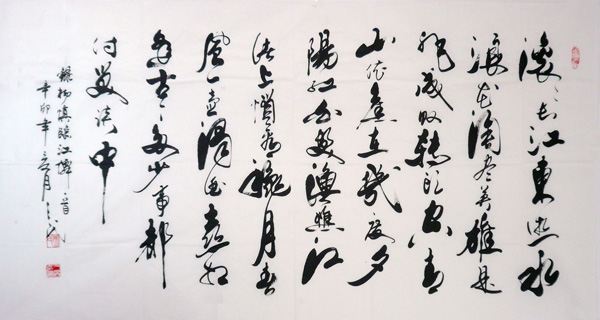 滚滚长江東逝水
浪花淘尽英雄是
非成败转头空青
山依旧在幾度夕
陽红白发渔樵江
渚上惯看秋月春
风一壶浊酒喜相
逢古今多少事都
付笑谈中
杨慎临江仙一首
辛卯年